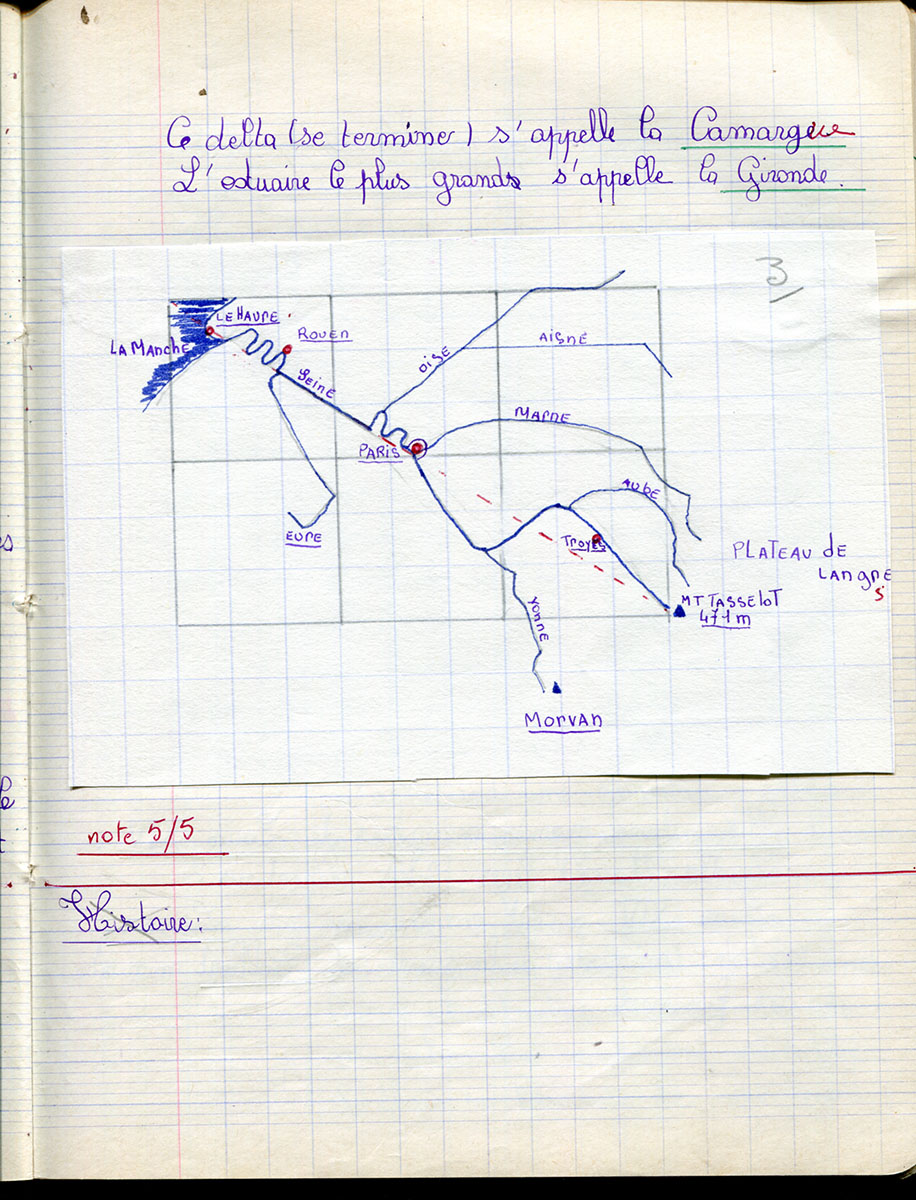 Ce delta (se terminer) s'appelle la Camargue
L'estuaire le plus grands s'appelle la Gironde.
3
LE HAVRE
ROUEN
LA MANCHE
SEINE
OISE
AISNE
MARNE
PARIS
AUBE
EURE
TROYES
PLATEAU de
LANGRE
S
MT TASSELOT
471 m
YONNE
MORVAN
le
note 5/5
Histoire: